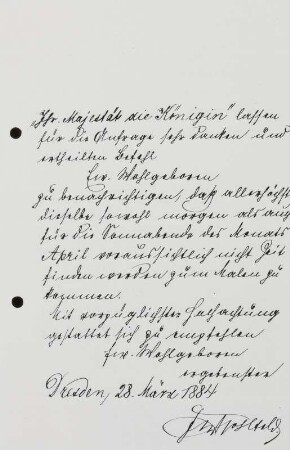 „Ihr. Majestät die Königin" lassen
für die Anfrage sehr danken und
ertheilten Befehl
Ew. Wohlgeboren
zu benachrichtigen, daß allerhöchst
dieselbe sowohl morgen als auch
für die Sonnabende des Monats
April voraussichtlich nicht Zeit
finden werden zum Malen zu
kommen.
Mit vorzüglichster Hochachtung
gestattet sich zu empfehlen
Ew. Wohlgeboren
ergebenster
Dresden, 28. März 1884